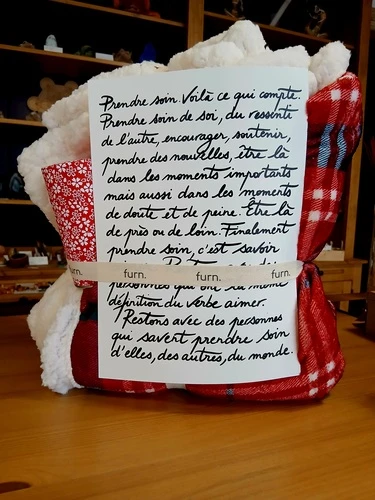 Prendre soin. Voilà ce qui compte.
Prendre soin de soi, du ressenti
de l'autre, encourager, soutenir,
prendre des nouvelles, être là
dans les moments importants
mais aussi dans les moments
de doute et de peine. Être là
de près ou de loin. Finalement
prendre soin, c'est savoir
furn. furn. furn.
personnes qui ont la même
définition du verbe aimer.
Restons avec des personnes
qui savent prendre soin
d'elles, des autres, du monde.